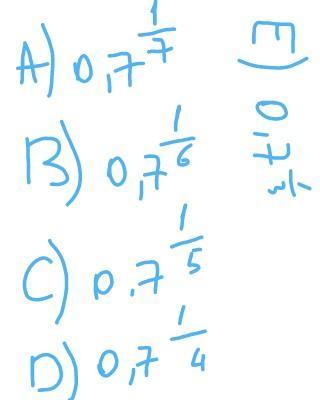 A) 0,7^1/7
B) 0,7^1/6
C) 0,7^1/5
D) 0,7^1/4
E) 0,7^1/3